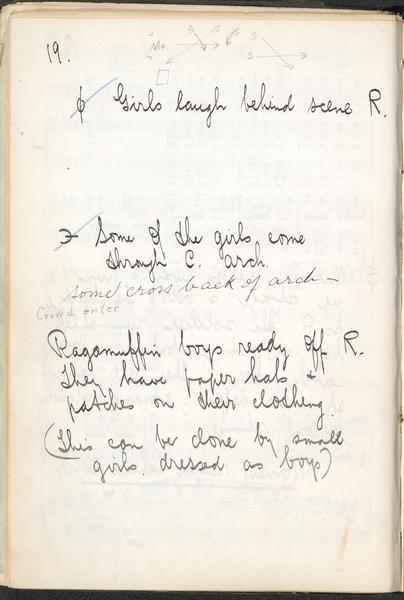 19.
Mo
S
S
6 Girls laugh behind scene R.
7 Some of the girls come
through C. arch.
some cross back of arch –
Crowd enter
Ragamuffin boys ready off R.
They have paper hats +
patches on their clothing.
(This can be done by small
girls dressed as boys)